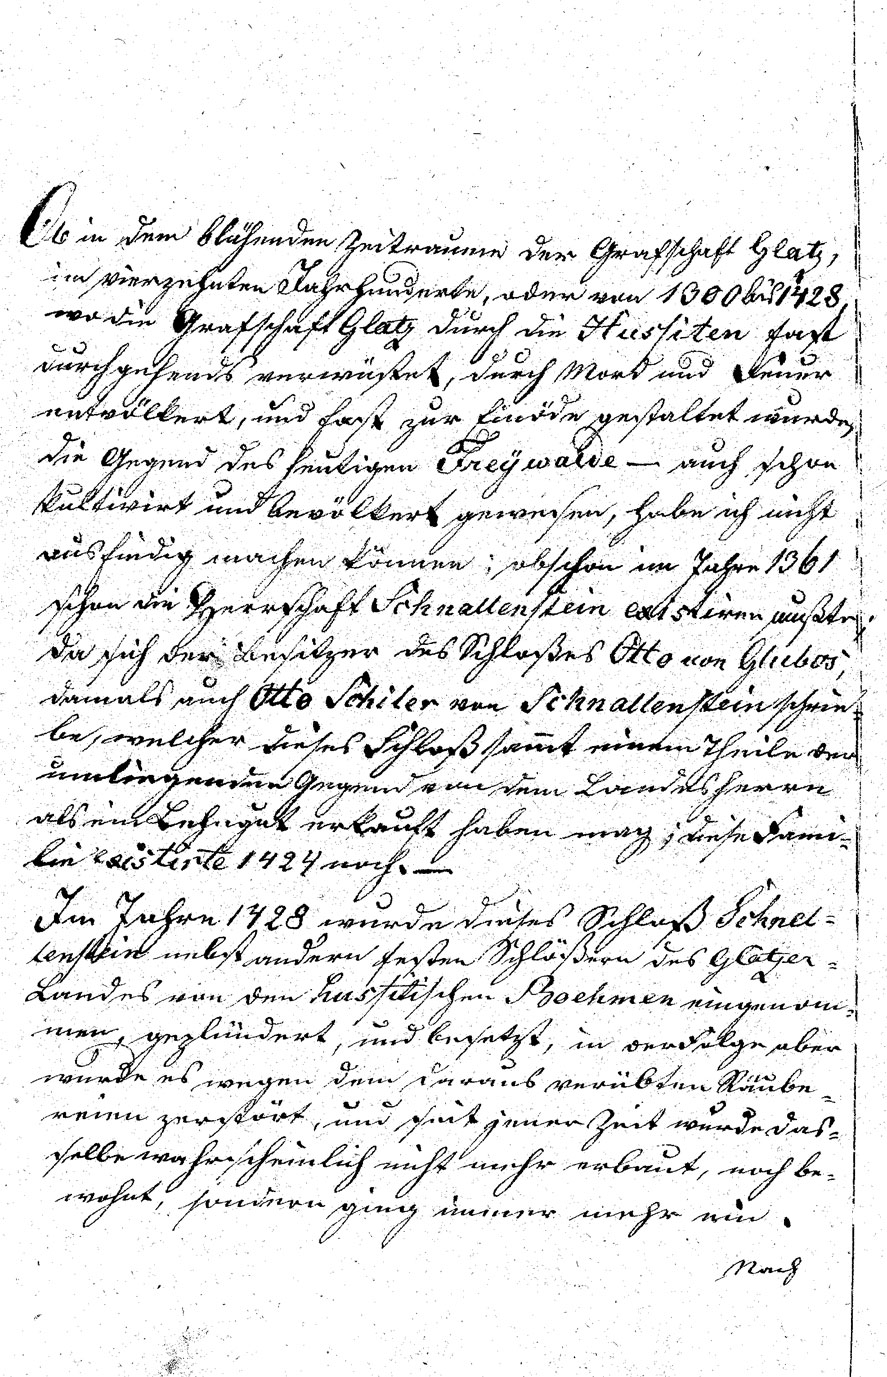 Ob in dem blühenden Zeitraume der Grafschaft Glatz,
im vierzehnten Jahrhunderte, oder von 1300 bis 1428,
wo die Grafschaft Glatz durch die Hussiten fast
durchgehends verwüstet, durch Mord und Feuer
entvölkert, und fast zur Einöde gestaltet wurde,
die Gegend des heutigen Freÿwalde — auch schon
kultivirt und bevölkert gewesen, habe ich nicht
ausfindig machen können; obschon im Jahre 1361
schon die Herrschaft Schnallenstein existiren mußte,
da sich der Besitzer des Schloßes Otto von Glubos,
damals auch Otto Schiler von Schnallenstein schrie-
be, welcher dieses Schloß sammt einem Theile der
umliegenden Gegend von dem Landesherrn
als ein Lehngut erkauft haben mag; diese Fami-
lie existirte 1424 noch. —
Im Jahre 1428 wurde dieses Schloß Schnel-
lenstein nebst andern festen Schlößern des Glatzer-
Landes von den hussitischen Boehmen eingenom-
men, geplündert, und besetzt, in der Folge aber
wurde es wegen dem daraus verübten Räube-
reien zerstört, und seit jener Zeit wurde das-
selbe wahrscheinlich nicht mehr erbaut, noch be-
wohnt, sondern ging immer mehr ein.
Nach